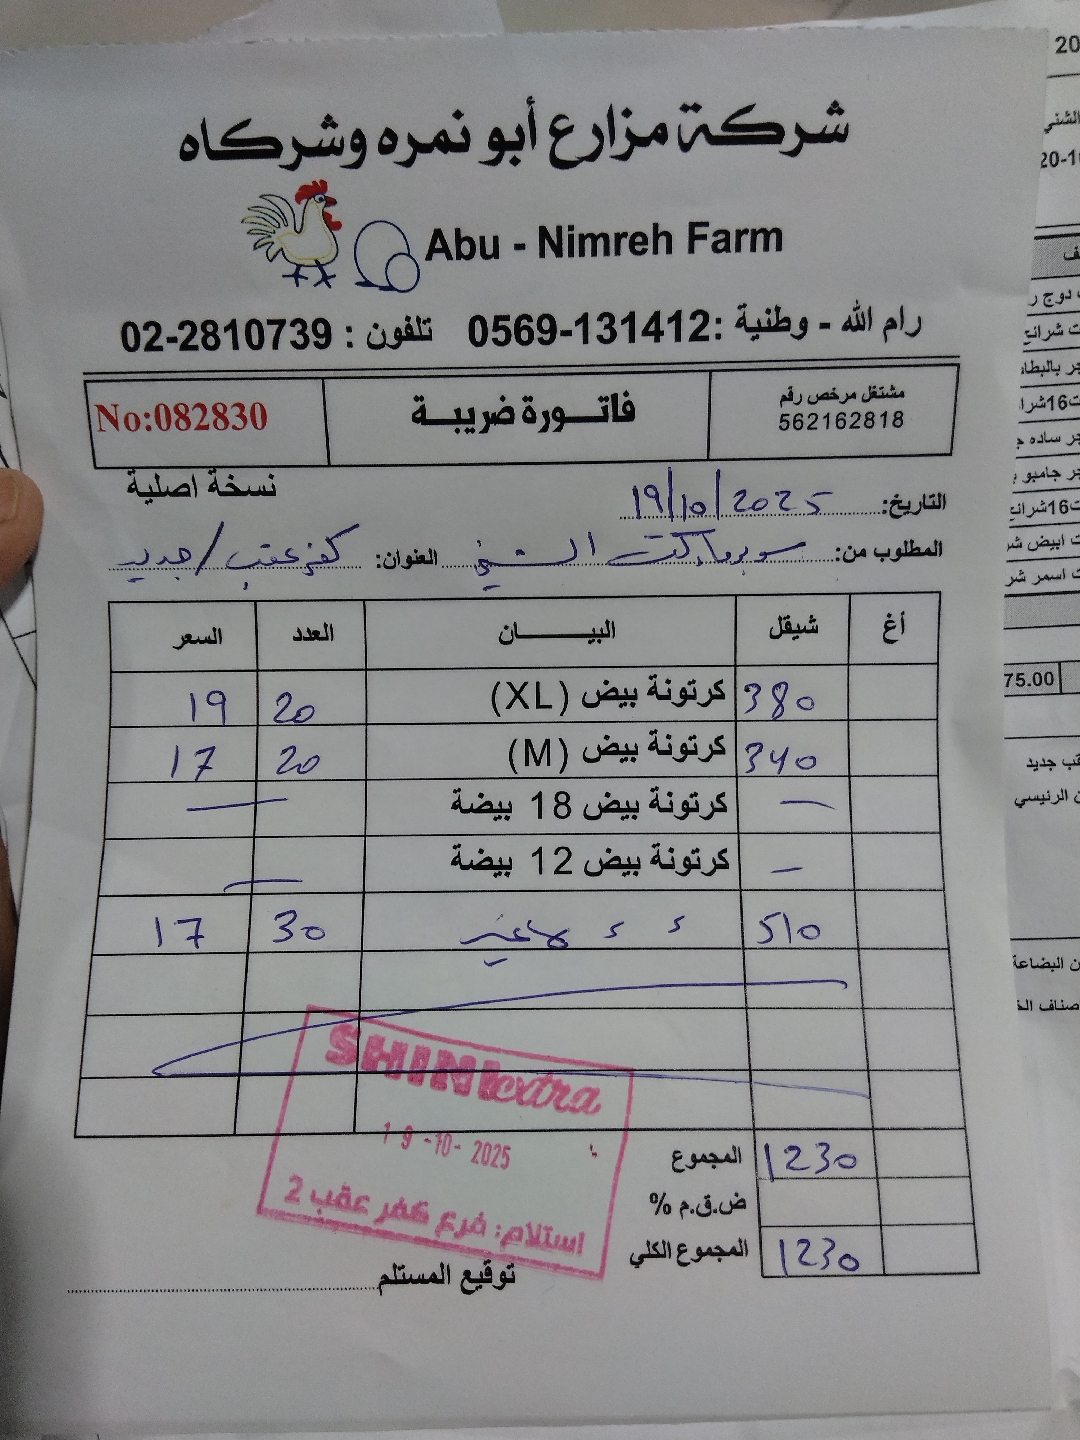 شركة مزارع أبو نمره وشركاه
Abu - Nimreh Farm
رام الله - وطنية :0569-131412 تلفون : 02-2810739
مشتغل مرخص رقم
562162818
فاتورة ضريبة
No:082830
نسخة اصلية
التاريخ: 19/10/2025
المطلوب من: سوبرماركت الشني العنوان: كفر عقب / جديد
أغ شيقل البيان العدد السعر
380 كرتونة بيض (XL) 20 19
340 كرتونة بيض (M) 20 17
— كرتونة بيض 18 بيضة —
— كرتونة بيض 12 بيضة —
510 30 17
SHINI extra
19-10-2025
استلام: فرع كفر عقب 2
المجموع 1230
ض.ق.م %
المجموع الكلي 1230
توقيع المستلم
20
20-10
75.00
قب جديد
ن الرئيسي
ن البضاعة